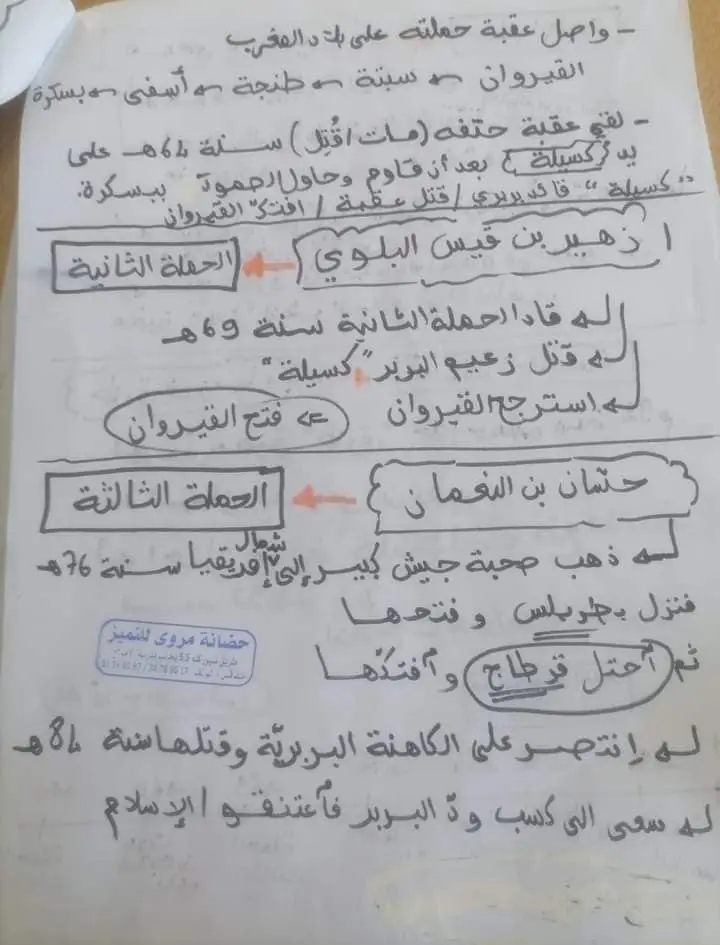 - واصل عقبة حملته على بلاد المغرب
القيروان ← سبتة ← طنجة ← أسفى ← بسكرة
- لقي عقبة حتفه (مات / قُتِل) سنة 64 هـ على
يد "كسيلة" بعد أن قاوم وحاول الصمود ببسكرة.
"كسيلة" قائد بربري / قتل عقبة / افتكّ القيروان
زهير بن قيس البلوي ← الحملة الثانية
قاد الحملة الثانية سنة 69 هـ
قتل زعيم البربر "كسيلة"
استرجع القيروان ⇐ فتح القيروان
حسّان بن النعمان ← الحملة الثالثة
ذهب صحبة جيش كبير إلى شمال إفريقيا سنة 76 هـ
فنزل بطربلس و فتحها
ثم أحتل قرطاج و أفتكّها
حضانة مروى للتميز
إنتصر على الكاهنة البربريّة وقتلها سنة 84 هـ
سعى الى كسب ودّ البربر فأعتنقو الإسلام